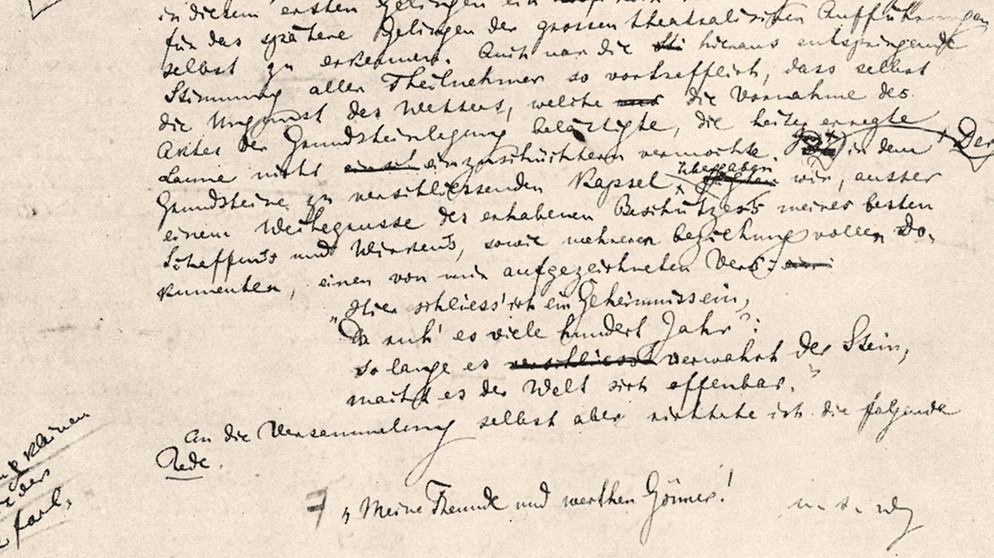 in diesem ersten Gelingen ein
für das spätere Gelingen der grossen theatralischen Aufführungen
selbst zu erkennen. Auch war die hieraus entspringende
Stimmung aller Theilnehmer so vortrefflich, dass selbst
die Ungunst des Wetters, welche die Vornahme des
Aktes der Grundsteinlegung belästigte, die heiter erregte
Laune nicht einzuschüchtern vermochte. in dem Der
Grundsteine zu verschliessenden Kapsel übergaben wir, ausser
einem Weihegrusse des erhabenen Beschützers meines besten
Schaffens und Wirkens, sowie mehreren beziehungsvollen Do-
kumenten, einen von mir aufgezeichneten Vers:
"Hier schliess' ich ein Geheimniss ein,
da ruh' es viele hundert Jahr':
so lange es verwahrt der Stein,
macht es der Welt sich offenbar."
An die Versammlung selbst aber richtete ich die folgende
Rede.
"Meine Freunde und werthen Gönner!